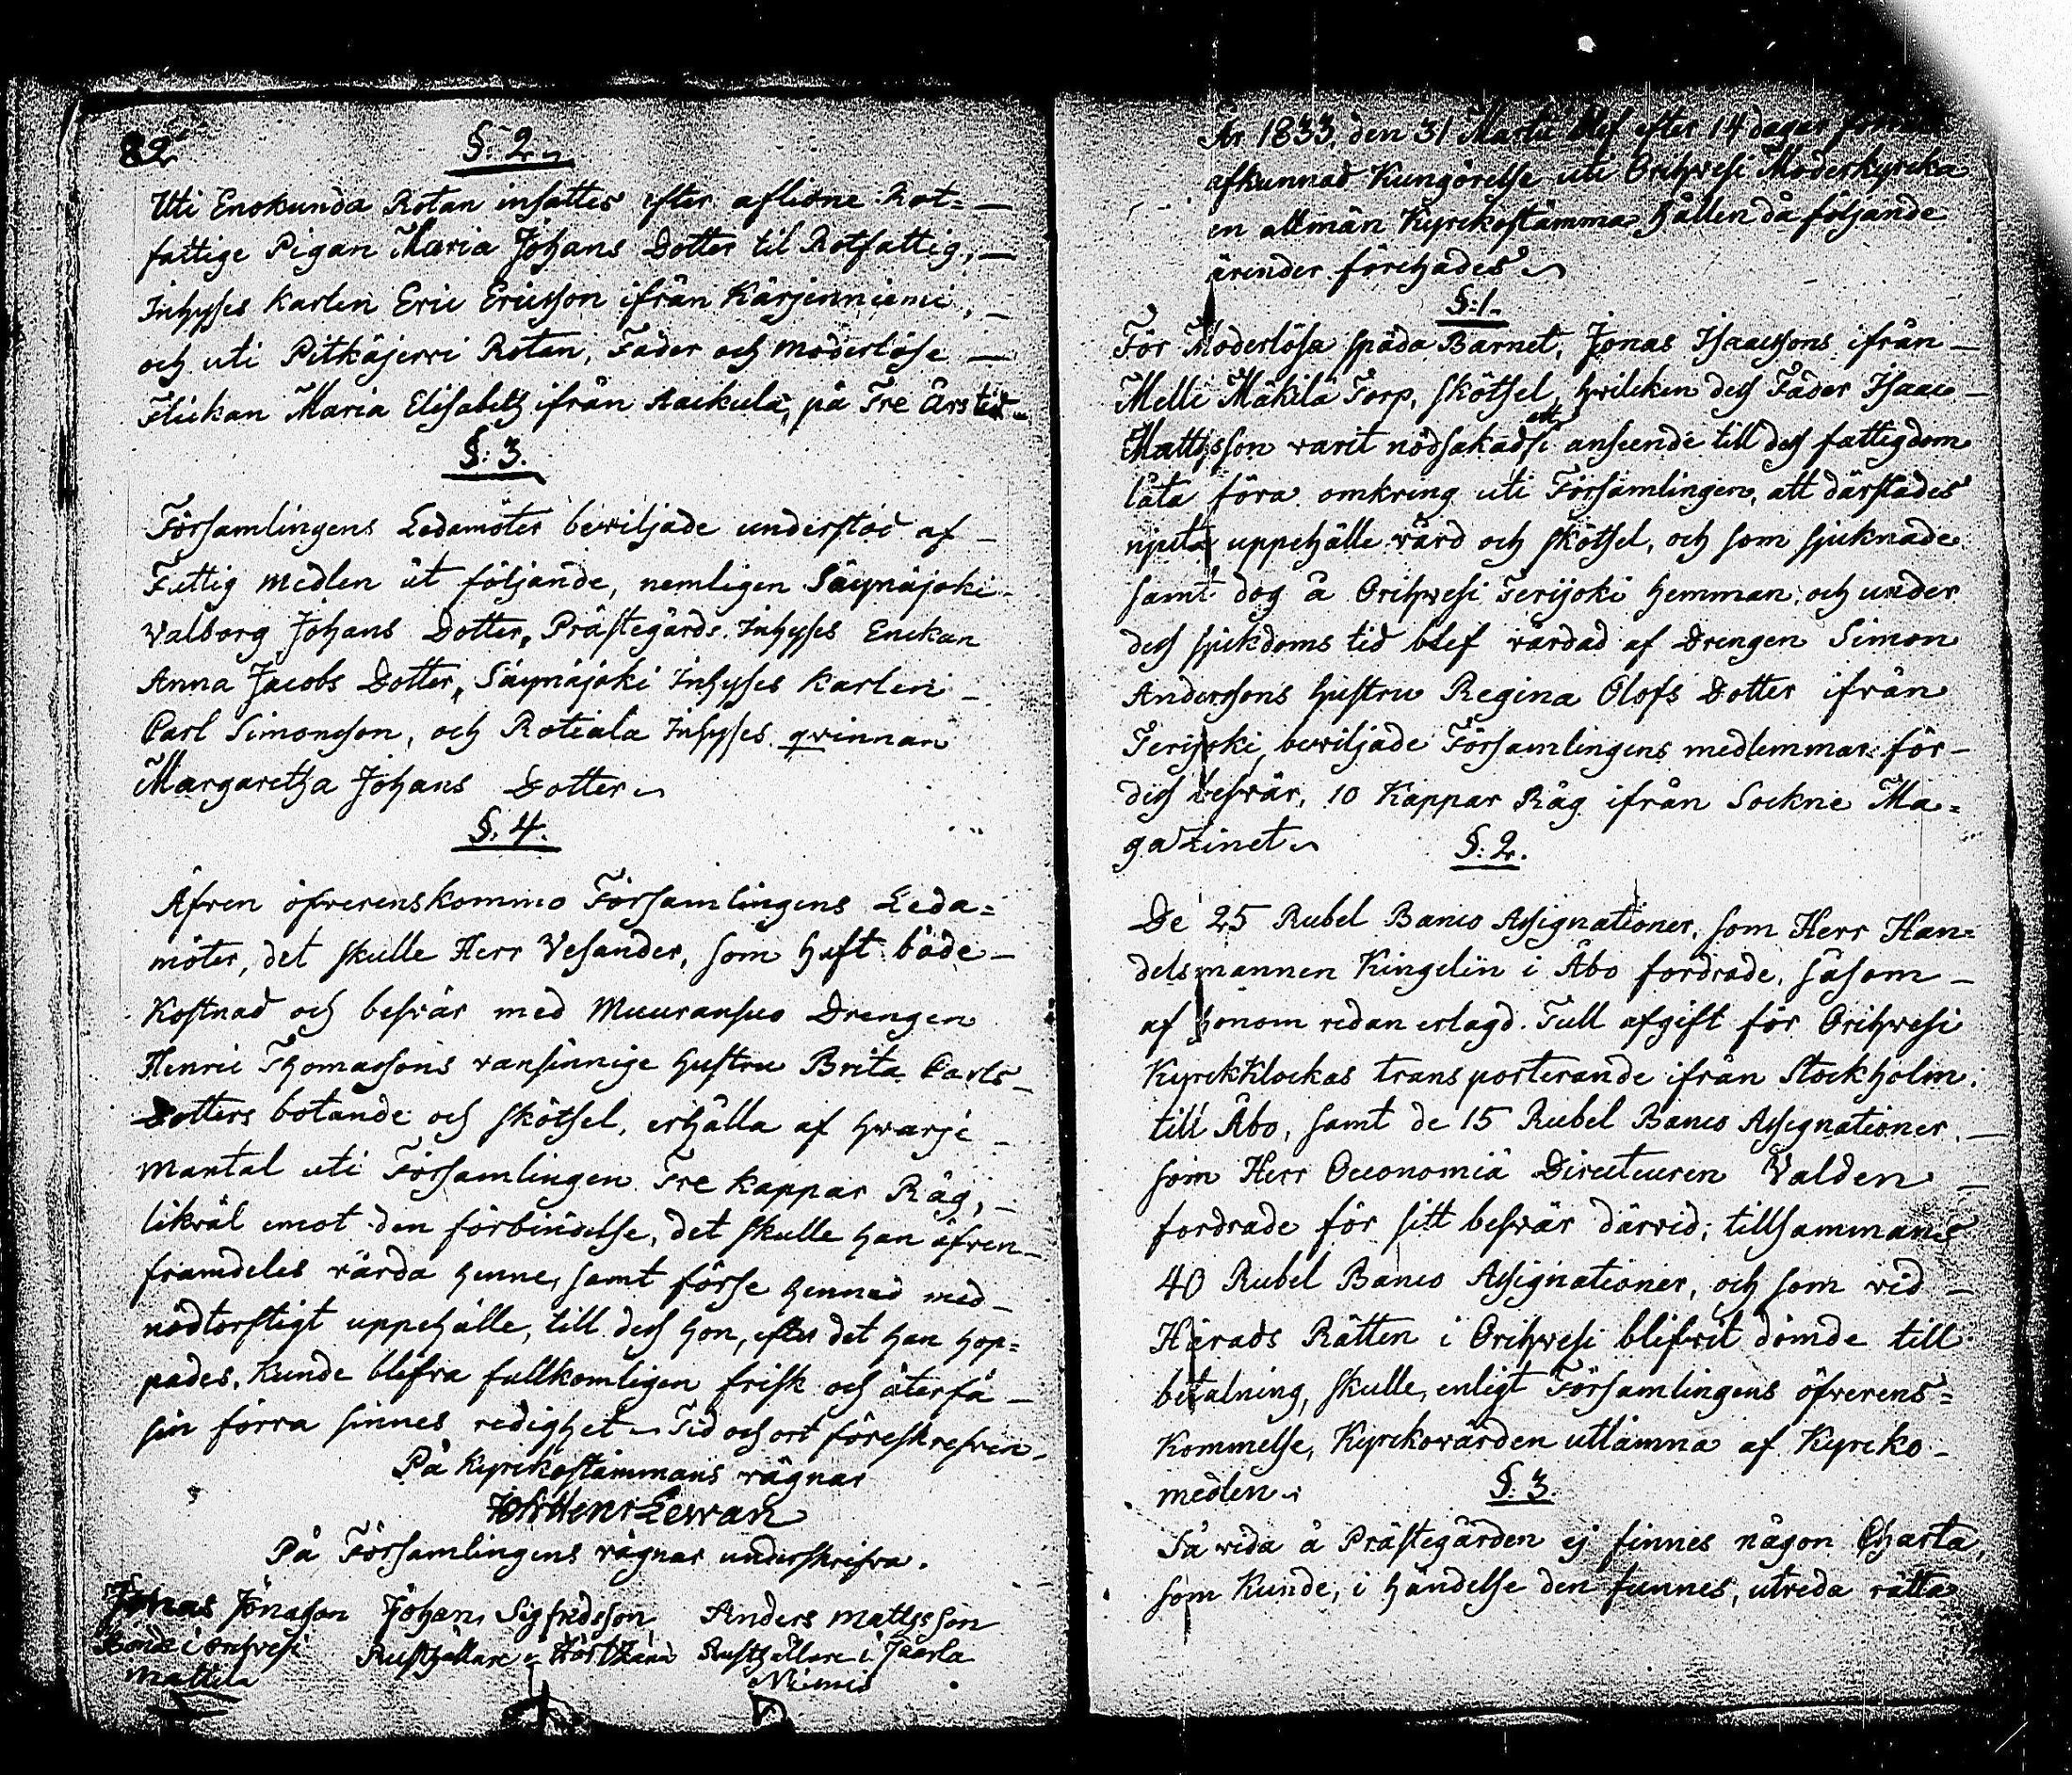 82
§: 2.
Uti Enokunda Rotan insattes efter aflidne Rot=
fattige Pigan Maria Johans Dotter til Rotfattig,
Inhyses Karlen Eric Ericsson ifrån Kärjenniemi,
och uti Pitkäjerwi Rotan, Fader och Moderlöse
Flickan Maria Elisabeth ifrån Aackula, på Tre års tid
§: 3.
Församlingens Ledamöter bewiljade understöd af
Fattig medlen åt följande, nemligen Säynäjoki
Valborg Johans Dotter, Prästegårds Inhyses Enckan
Anna Jacobs Dotter, Säynäjoki Inhyses Karlen
Carl Simonsson, och Rotiala Inhyses qwinnan
Margaretha Johans Dotter
§. 4.
Äfven öfverenskommo Församlingens Leda=
möter, det skulle Herr Vesander, som haft både
Kostnad och besvär med Muuransuo Drengen
Henric Thomassons vansinnige hustru Brita Carls
Dotters botande och skötsel, erhålla af hwarje
mantal uti Församlingen Tre kappar Råg,
likväl emot den förbindelse, det skulle han äfven
framdeles vårda henne, samt förse henne med
nödtorftigt uppehälle, till dess hon, efter det han hop=
pades, kunde blifva fullkomligen frisk och återfå
sin förra sinnes redighet Tid och ort föreskrefven
På Kyrkostämmans vägnar
Joh Henr Lewan
På Församlingens vägnar underskrifva.
Jonas Jönasson Johan Sigfredsson Anders Mattsson
Bonde i Orihvesi Rusthållare Rusthållare i Jaarla
Mattila Niemis
År 1833, den 31 Martii blef efter 14 dagar
afkunnad Kungörelse uti Orihvesi Moderkyrcka
en allmän Kyrckostämma hållen då följande
ärender förehades
§: 1.
För Moderlösa späda Barnet, Jonas Isaacssons ifrån
Melli Mäkilä Torp, skötsel, hvilcken dess Fader Isaac
Mattsson varit nödsakad i anseende till dess fattigdom
låta föra omkring uti Församlingen, att därstädes
njuta uppehälle vård och skötsel, och som sjuknade
samt dog å Orihvesi Terijoki hemman, och under
dess sjukdoms tid blef vårdad af Drengen Simon
Anderssons hustru Regina Olofs Dotter ifrån
Terijoki, bewiljade Församlingens medlemmar för
dess besvär, 10 Kappar Råg ifrån Sockne Ma=
gazinet
§: 2.
De 25 Rubel Banco Assignationer, som Herr Han=
delsmannen Kingelin i Åbo fordrade, såsom
af honom redan erlagd Tull afgift för Orihvesi
Kyrckklockas transporterande ifrån Stockholm
till Åbo, samt de 15 Rubel Banco Assignationer,
som Herr Oeconomiä Directeuren Valden
fordrade för sitt besvär därvid; tillsammans
40 Rubel Banco Assignationer, och som vid
Härads Rätten i Orihvesi blifvit dömde till
betalning, skulle, enligt Församlingens öfverens=
kommelse, Kyrckovärden utlämna af Kyrcko
medlen
§: 3.
Så vida å Prästegården ej finnes någon Charta,
som kunde, i händelse den funnes, utreda rätta